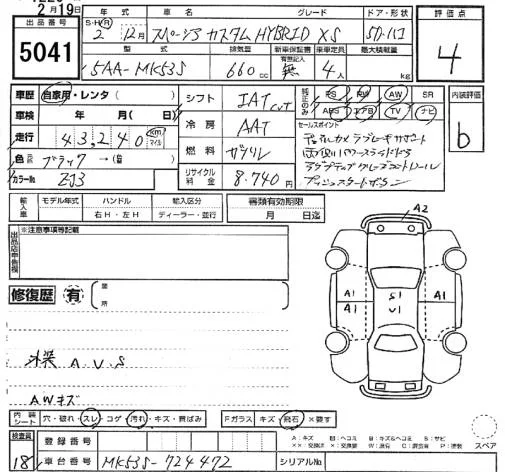 2月19日
出品番号 年式 車名 グレード ドア・形状 評価点
5041
S・H・R 2 12月 スペーシア カスタム HYBRID XS 5D.ハコ
4
型式 排気量 新車保証書 乗車定員 最大積載量
5AA-MK53S 660cc 有無記入 無 4人 kg
車歴 自家用・レンタ( )
シフト IAT CVT
純正のみ PS PW AW SR
内装評価
車検 年 月( 日)
ABS エアB TV ナビ
b
走行 43,240 km マイル
冷房 AAT
セールスポイント
色 ブラック→( 替)
燃料 ガソリン
カラーNo ZJ3
リサイクル料金 8.740円
プッシュスタートボタン
輸入車 モデル年式 ハンドル 輸入区分 書類有効期限
右H・左H ディーラー・並行 月 日迄
出品店申告欄 ※注意事項等記載
A2
修復歴 有 箇所
A1 S1 A1
V1
外装 A.V.S
AWキズ
内装シート 穴・破れ・スレ・コゲ・汚れ・キズ・黄ばみ
Fガラス キズ・飛石 ×要す
検査員 登録番号
A:キズ B:ヘコミ
スペア
18 車台番号 MK53S-724472 シリアルNo